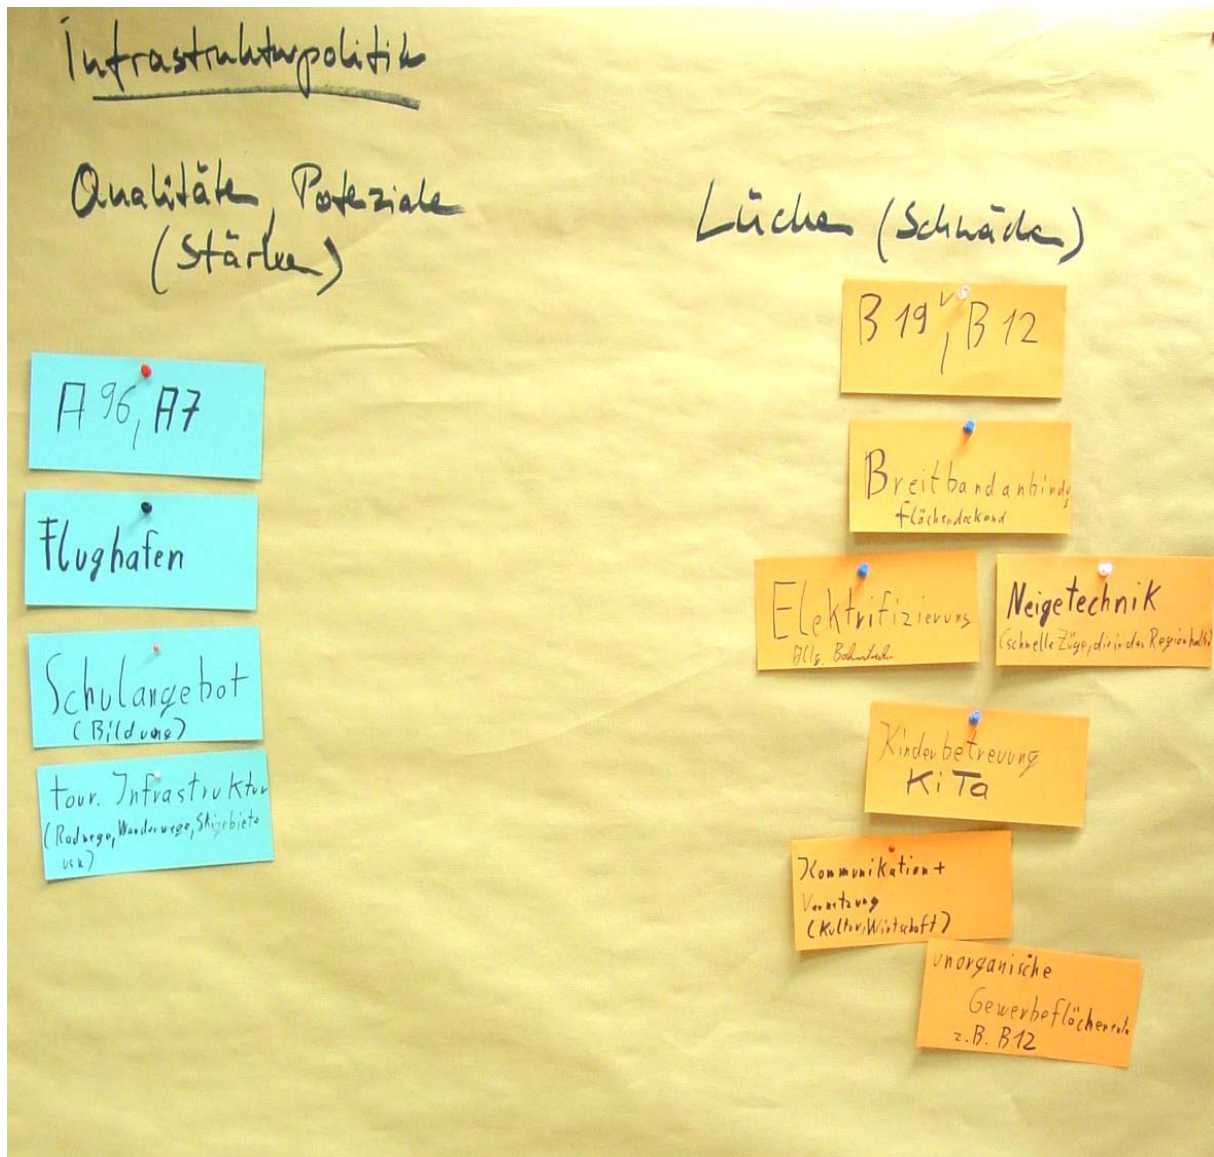 Infrastrukturpolitik
Qualitäten, Poteziale
(Stärken)
A 96, A7
Flughafen
Schulangebot
(Bildung)
tour. Infrastruktur
(Radwege, Wanderwege, Skigebiete
usw)
Lücken (Schwächen)
B 19, B 12
Breitbandanbindg
flächendeckend
Elektrifizierung
Allg.
Neigetechnik
(schnelle Züge, die in der Region halten)
Kinderbetreuung
KiTa
Kommunikation +
Vernetzung
(Kultur, Wirtschaft)
unorganische
z.B. B12